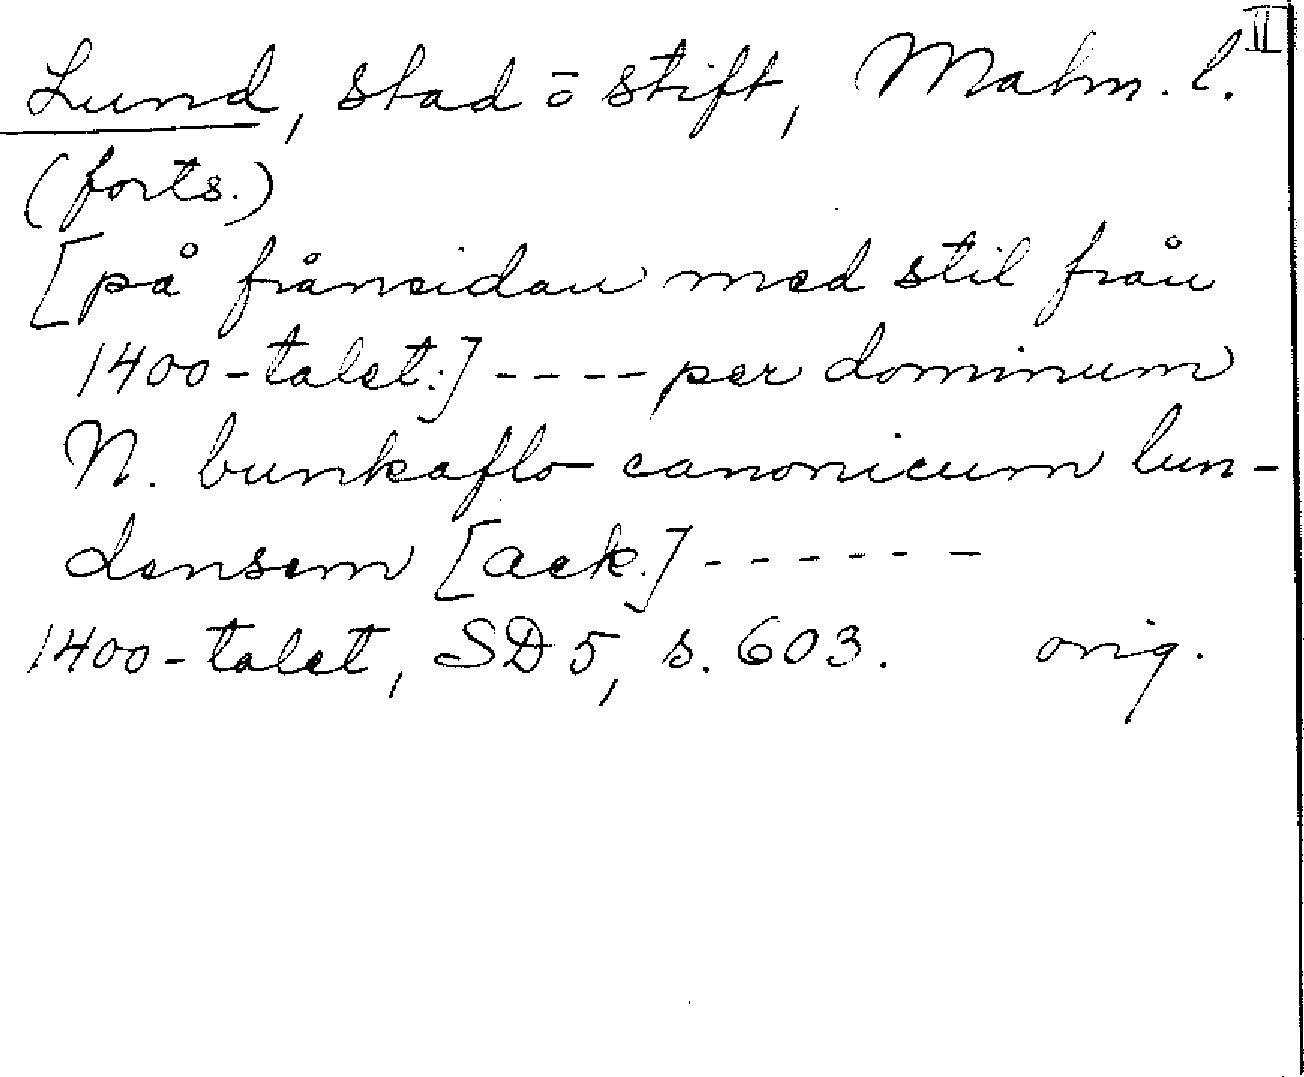 II
Lund, stad ō stift, Malm. l.
(forts.)
[på frånsidan med stil från
1400-talet:] ---- per dominum
N. bunkaflo canonicum lun-
densem [ack.] ------
1400-talet, SD 5, s. 603. orig.